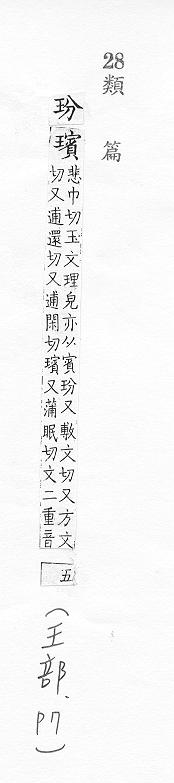 28 類篇
玢璸
悲巾切玉文理皃亦从賓玢又敷文切又方文
切又逋還切又逋閑切璸又蒲眠切文二重音
五
(王部、P7)